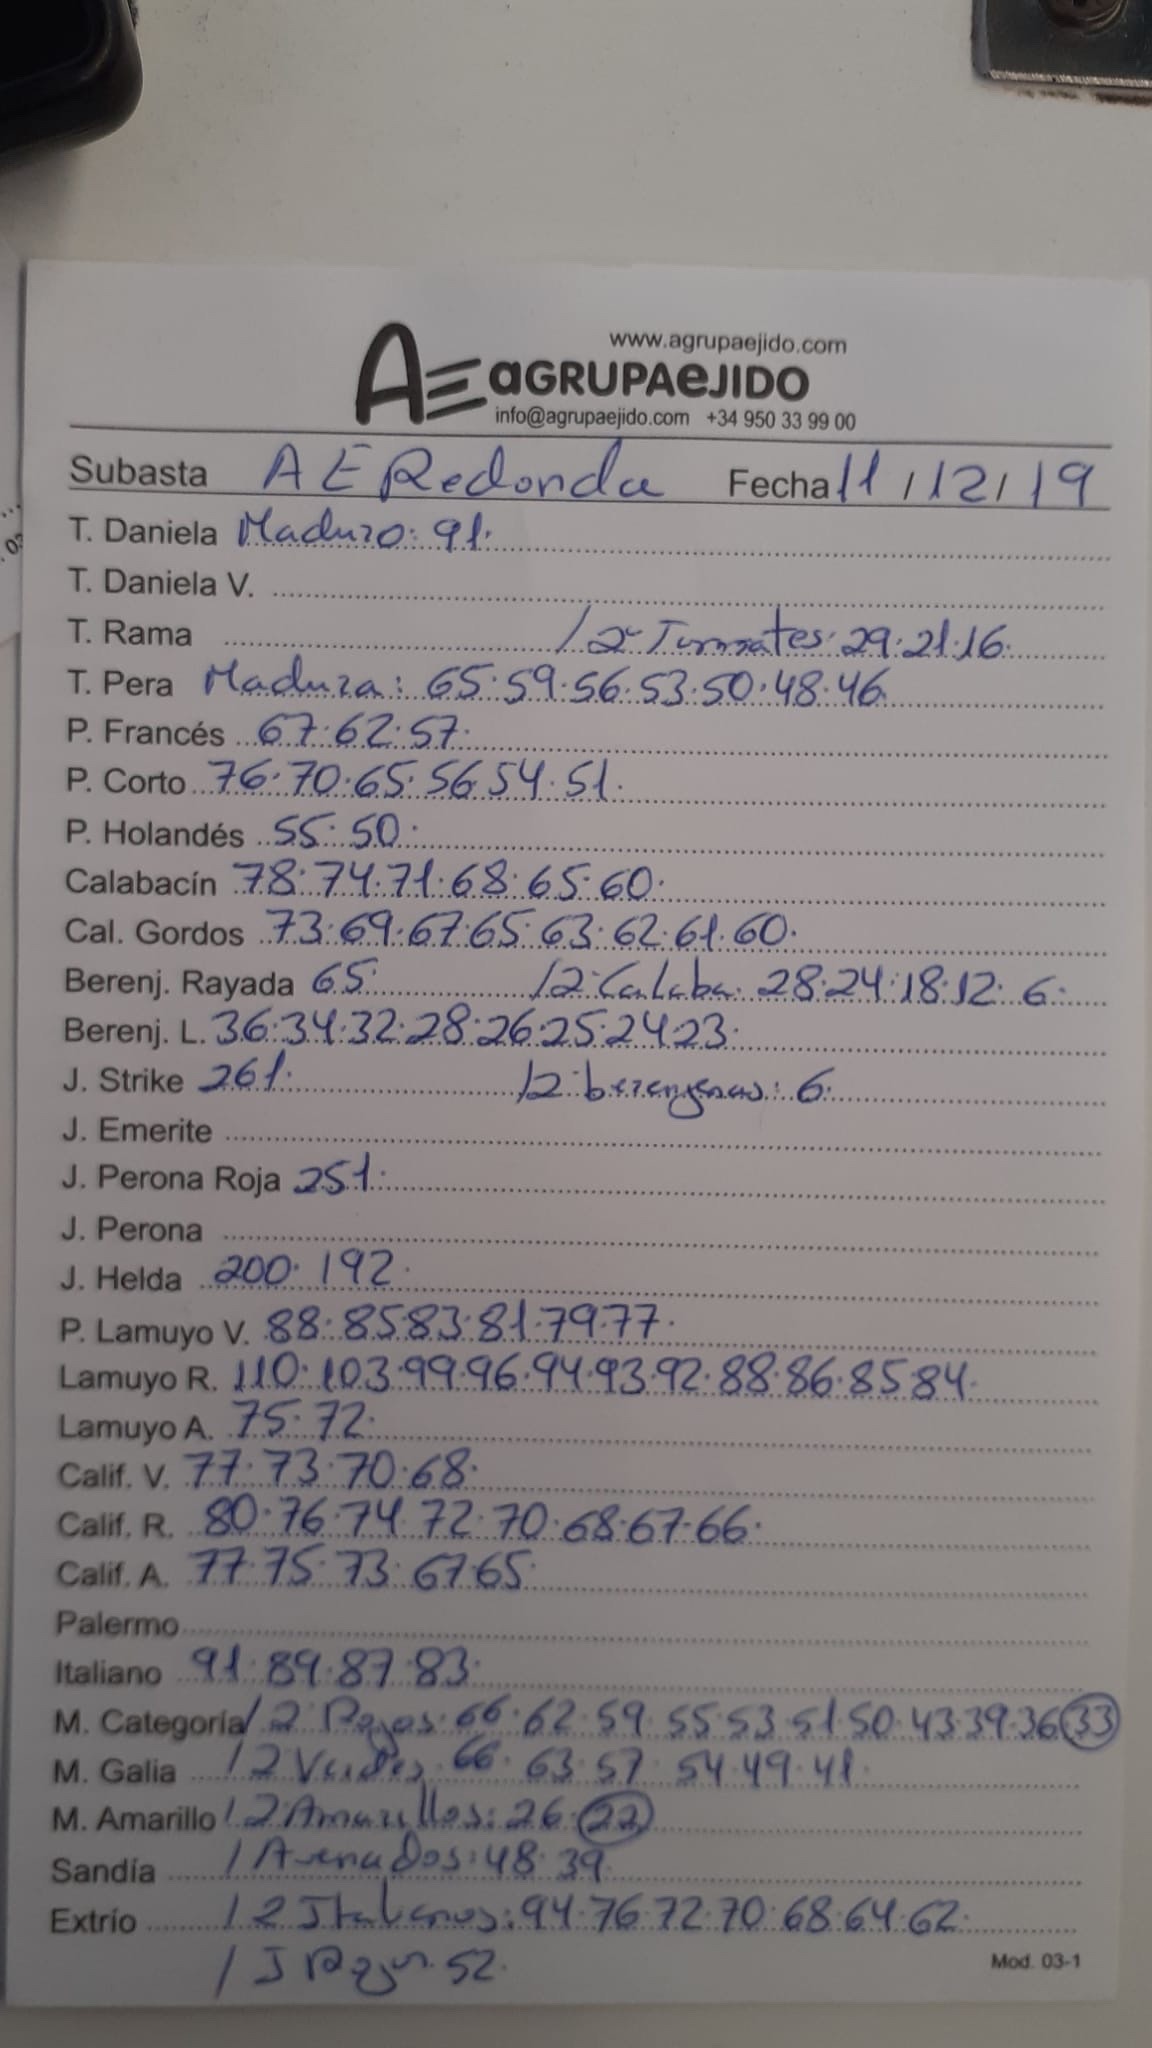 www.agrupaejido.com
AE aGRUPAeJIDO
info@agrupaejido.com +34 950 33 99 00
Subasta A E Redonda Fecha 11 / 12 / 19
T. Daniela Maduro: 91.
T. Daniela V.
T. Rama / 2ª Tomates: 29.21.16.
T. Pera Madura: 65.59.56.53.50.48.46
P. Francés 67.62.57.
P. Corto 76.70.65.56.54.51.
P. Holandés 55.50.
Calabacín 78.74.71.68.65.60.
Cal. Gordos 73.69.67.65.63.62.61.60.
Berenj. Rayada 65. /2 Calaba. 28.24.18.12.6.
Berenj. L. 36.34.32.28.26.25.24.23.
J. Strike 261. /2 berenjenas: 6.
J. Emerite
J. Perona Roja 251.
J. Perona
J. Helda 200.192.
P. Lamuyo V. 88.85.83.81.79.77.
Lamuyo R. 110.103.99.96.94.93.92.88.86.85.84.
Lamuyo A. 75.72.
Calif. V. 77.73.70.68.
Calif. R. 80.76.74.72.70.68.67.66.
Calif. A. 77.75.73.67.65.
Palermo
Italiano 91.89.87.83.
M. Categoría / 2 Rojos: 66.62.59.55.53.51.50.43.39.36 33
M. Galia / 2 Verdes. 66.63.57.54.49.41.
M. Amarillo / 2 Amarillos: 26. 22
Sandía / : 48.39.
Extrío / 2 Italianos: 94.76.72.70.68.64.62.
/ J 52.
Mod. 03-1